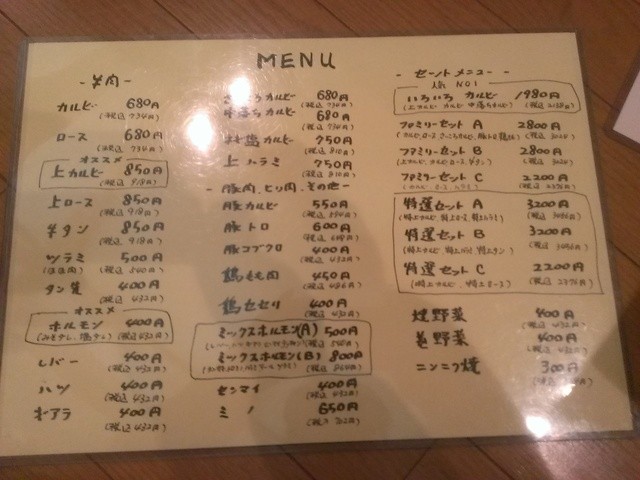 MENU
-牛肉-
カルビ 680円
(税込 734円)
ロース 680円
(税込 734円)
オススメ
上カルビ 850円
(税込 918円)
上ロース 850円
(税込 918円)
牛タン 850円
(税込 918円)
ツラミ 500円
(ほほ肉) (税込 540円)
タン先 400円
(税込 432円)
オススメ
ホルモン 400円
(みそダレ、塩ダレ) (税込 432円)
レバー 400円
(税込 432円)
ハツ 400円
(税込 432円)
400円
(税込 432円)
カルビ 680円
(税込 734円)
中落ちカルビ 680円
(税込 734円)
カルビ 750円
(税込 810円)
上ハラミ 750円
(税込 810円)
-豚肉、とり肉、その他-
豚カルビ 550円
(税込 594円)
豚トロ 600円
(税込 648円)
豚コブクロ 400円
(税込 432円)
鶏もも肉 450円
(税込 486円)
鶏セセリ 400円
(税込 432円)
ミックスホルモン(A) 500円
(税込 540円)
ミックスホルモン(B) 800円
(税込 864円)
センマイ 400円
(税込 432円)
ミノ 650円
(税込 702円)
-セットメニュー-
人気 NO1
いろいろカルビ 1980円
(上カルビ カルビ 中落ちカルビ) (税込 2138円)
ファミリーセット A 2800円
(税込 3024円)
ファミリーセット B 2800円
(税込 3024円)
ファミリーセット C 2200円
(税込 2376円)
特選セット A 3200円
(特上カルビ、特上ロース、特上ハラミ) (税込 3456円)
特選セット B 3200円
(税込 3456円)
特選セット C 2200円
(特上カルビ、特上ロース) (税込 2376円)
焼野菜 400円
(税込 432円)
巻野菜 400円
(税込 432円)
ニンニク焼 300円